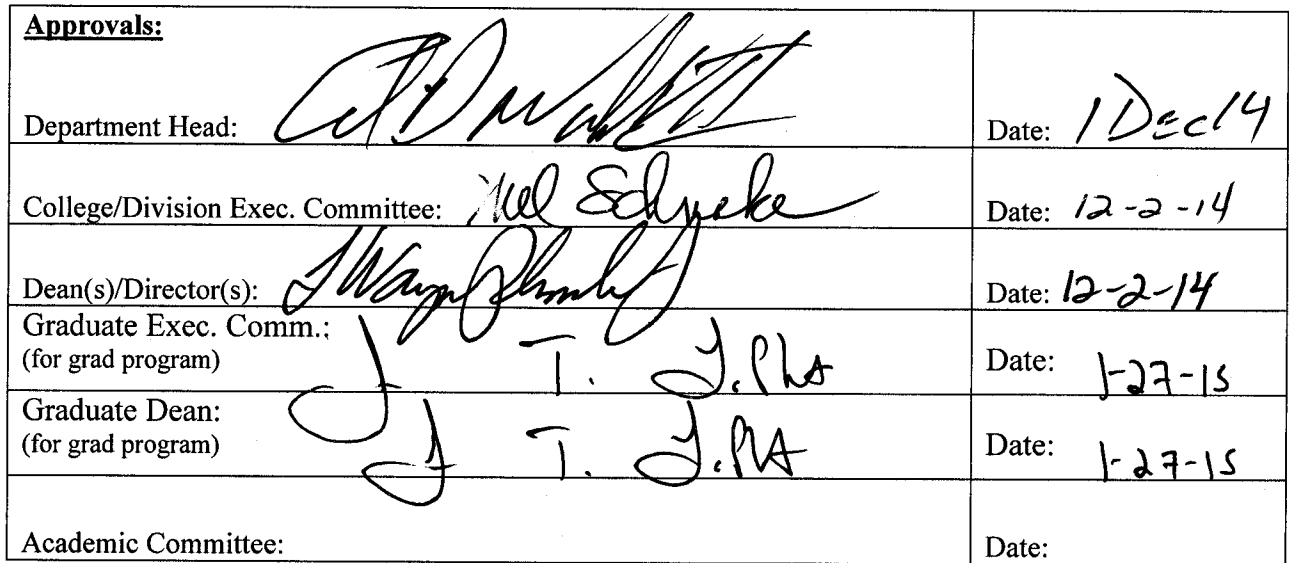 Approvals:
Department Head: Date: 1 Dec 14
College/Division Exec. Committee: Date: 12-2-14
Dean(s)/Director(s): Date: 12-2-14
Graduate Exec. Comm.:
(for grad program) Date: 1-27-15
Graduate Dean:
(for grad program) Date: 1-27-15
Academic Committee: Date: